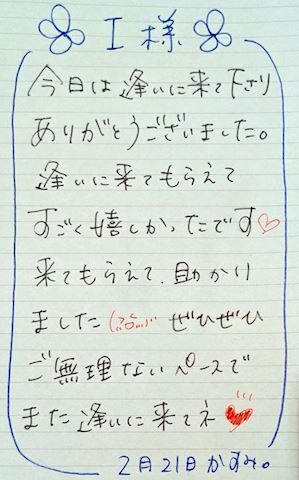 I様
今日は逢いに来て下さり
ありがとうございました。
逢いに来てもらえて
すごく嬉しかったです♡
来てもらえて、助かり
ました ぜひぜひ
ご無理ないペースで
また逢いに来てネ♥
2月21日かすみ。